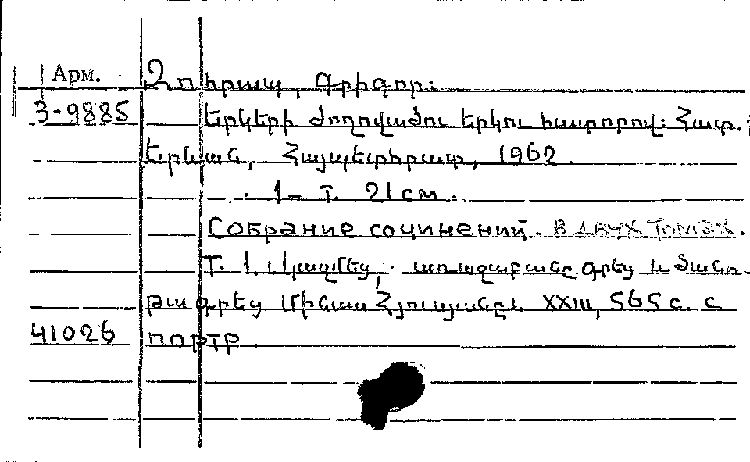 Арм. Զոհրապ, Գրիգոր։
3-9885 Երկերի ժողովածու երկու հատորով։ Հատ.
Երևան, Հայպետհրատ, 1962
1- т. 21 см.
Собрание сочинений. В двух томах.
Т. 1. Կազմեց, առաջաբանը գրեց և ծանո-
թագրեց Մինաս Հյուսյանը. XXIII, 565 с. с
41026 портр.